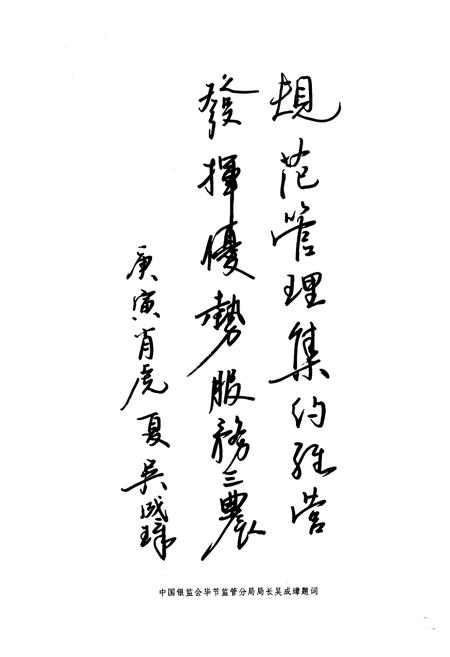 规范管理集约经营
發揮優勢服務三農
庚寅肖虎夏吴成璋
中国银监会毕节监管分局局长吴成璋题词